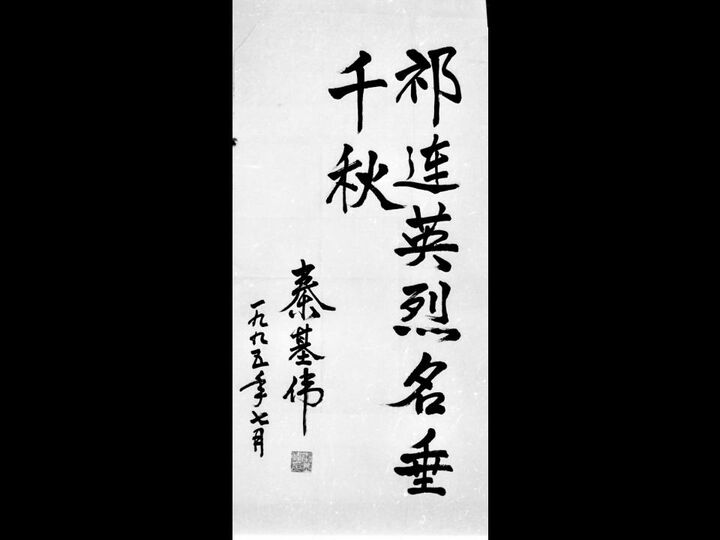 祁连英烈名垂
千秋
秦基伟
一九九五年七月